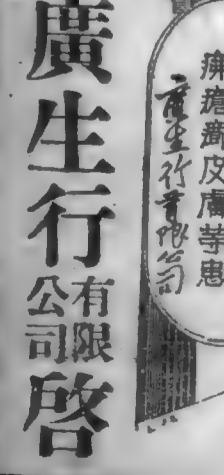 皮膚等患
廣生行有限公司
廣生行
有限
公司
啓